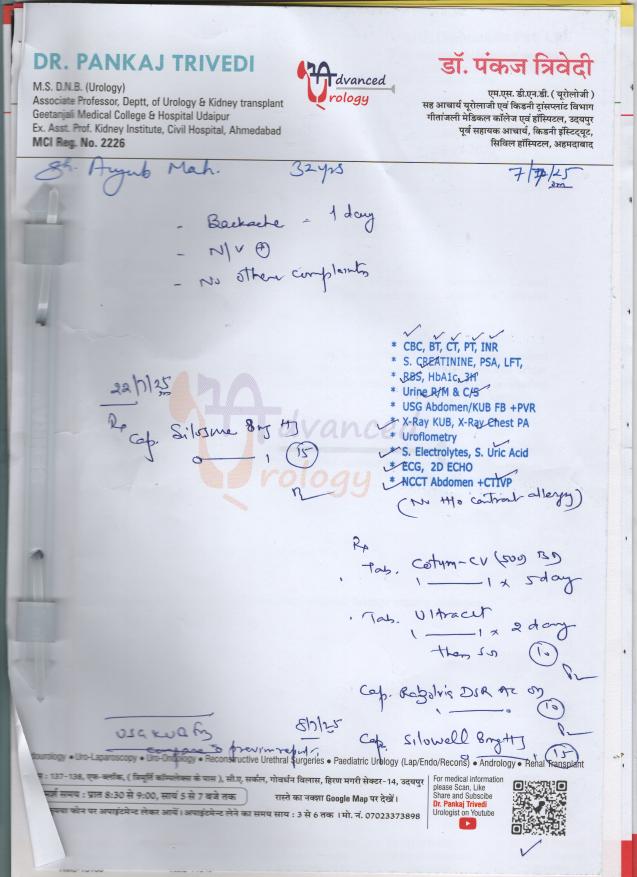 DR. PANKAJ TRIVEDI
M.S. D.N.B. (Urology)
Associate Professor, Deptt. of Urology & Kidney transplant
Geetanjali Medical College & Hospital Udaipur
Ex. Asst. Prof. Kidney Institute, Civil Hospital, Ahmedabad
MCI Reg. No. 2226
Advanced
Urology
डॉ. पंकज त्रिवेदी
एम.एस. डी.एन.बी. ( यूरोलोजी )
सह आचार्य यूरोलाजी एवं किडनी ट्रांसप्लांट विभाग
गीतांजली मेडिकल कॉलेज एवं हॉस्पिटल, उदयपुर
पूर्व सहायक आचार्य, किडनी इंस्टिट्यूट,
सिविल हॉस्पिटल, अहमदाबाद
Sh. Ayyub Moh. 32yrs
- Backache - 1 day
- N/V ⊕
- No other complaints
* CBC, BT, CT, PT, INR
* S. CREATININE, PSA, LFT,
* RBS, HbA1c, 3H
* Urine R/M & C/S
* USG Abdomen/KUB FB +PVR
* X-Ray KUB, X-Ray Chest PA
* Uroflometry
* S. Electrolytes, S. Uric Acid
* ECG, 2D ECHO
* NCCT Abdomen +CTIVP
(No H/o contrast allergy)
22/7/25
Rx
Cap. 8mg HS
0 — 1 (15)
Advanced
Urology
Rx
Tab. -CV (500) BD
1 — 1 x 5 day
Tab. Ultracet
1 — 1 x 2 day
then
(10)
Cap. DSR AC
1 — (10)
8/7/25
Cap. Silowell 8mg HS
(15)
USG KUB
compare previous report
ourology ● Uro-Laparoscopy ● Uro-Oncology ● Reconstructive Urethral Surgeries ● Paediatric Urology (Lap/Endo/Recons) ● Andrology ● Renal Transplant
: 137-138, एफ-ब्लॉक, ( त्रिमूर्ति कॉम्पलेक्स के पास ), सी.ए. सर्कल, गोवर्धन विलास, हिरण मगरी सेक्टर-14, उदयपुर
मर्श समय : प्रातः 8:30 से 9:00, सायं 5 से 7 बजे तक
रास्ते का नक्शा Google Map पर देखें।
फोन पर अपाइंटमेन्ट लेकर आयें। अपाइंटमेन्ट लेने का समय सायं : 3 से 6 तक । मो. नं. 07023373898
For medical information
please Scan, Like
Share and Subscibe
Dr. Pankaj Trivedi
Urologist on Youtube